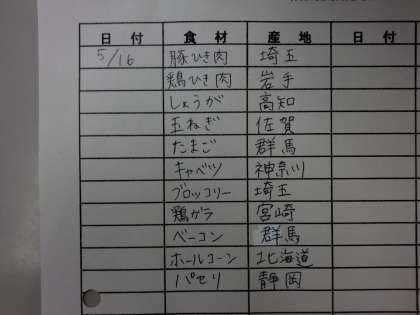 日付 食材 産地 日付
5/16 豚ひき肉 埼玉
鶏ひき肉 岩手
しょうが 高知
玉ねぎ 佐賀
たまご 群馬
キャベツ 神奈川
ブロッコリー 埼玉
鶏ガラ 宮崎
ベーコン 群馬
ホールコーン 北海道
パセリ 静岡